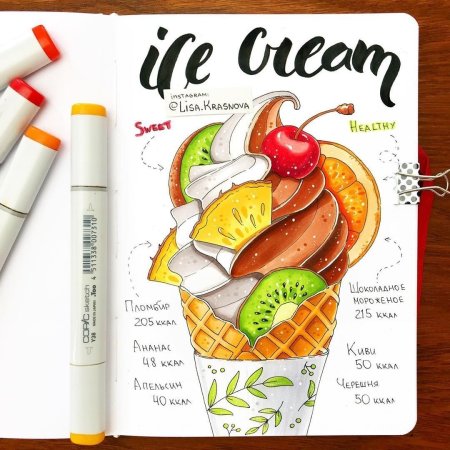 ice cream
INSTAGRAM:
@LISA.KRASNOVA
SWEET
HEALTHY
ПЛОМБИР
205 ККАЛ
АНАНАС
48 ККАЛ
АПЕЛЬСИН
40 ККАЛ
ШОКОЛАДНОЕ
МОРОЖЕНОЕ
215 ККАЛ
КИВИ
50 ККАЛ
ЧЕРЕШНЯ
50 ККАЛ
COPIC sketch
Y38
4 511338 007310